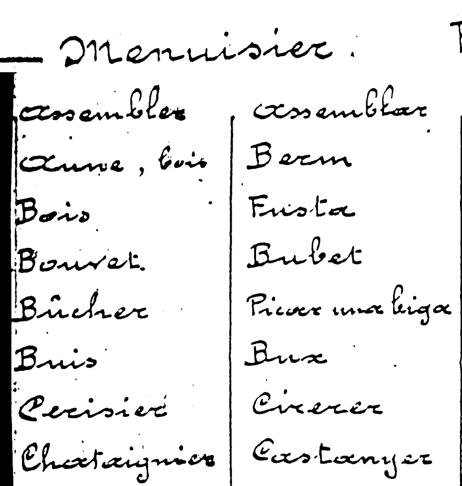 Menuisier.
Assembler Assemblar
Aune, bois Bern
Bois Fusta
Bouvet. Bubet
Bûcher Picar una biga
Buis Bux
Cerisier Cirerer
Chataignier Castanyer